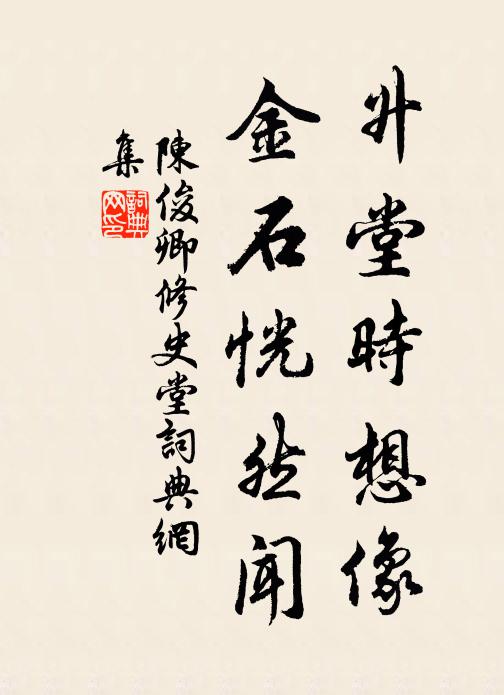 升堂時想像
金石恍然聞
陳俊卿修史堂詞典網
集
詞典網印